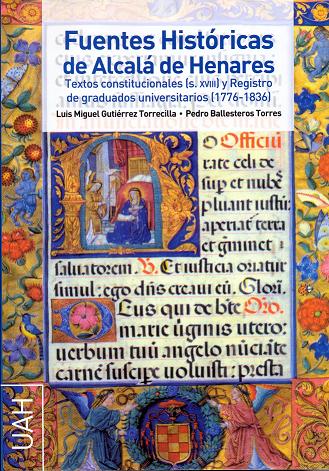 Fuentes Históricas
de Alcalá de Henares
Textos constitucionales (s. XVIII) y Registro
de graduados universitarios (1776-1836)
Luis Miguel Gutiérrez Torrecilla • Pedro Ballesteros Torres
Officiū
rate celi de
sup et nubes
pluant iustū:
aperiat terra
et gminet
saluatorem. Et iusticia oriatur
simul: ego dn̄s creaui eū. Glorī.
Deus qui de bt̄e Oro.
marie uginis utero:
uerbum tuū angelo nūciāte
carnē suscipe uoluisti: presta
UAH